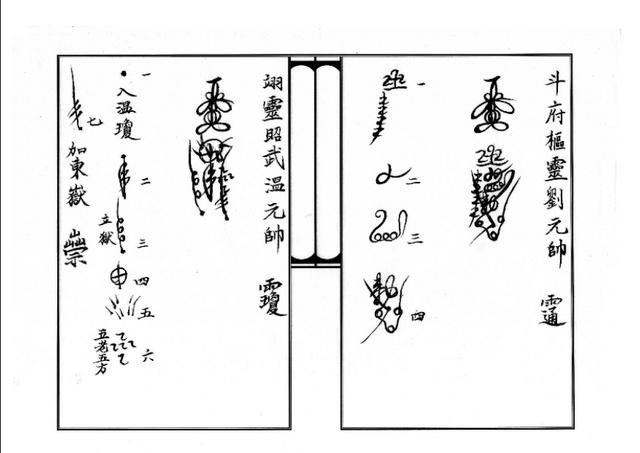 斗府樞靈劉元帥
一
二
三
四
翊靈昭武温元帥
一
入温瓊
二
三
立獄
四
五
六
五老五方
七
加東嶽